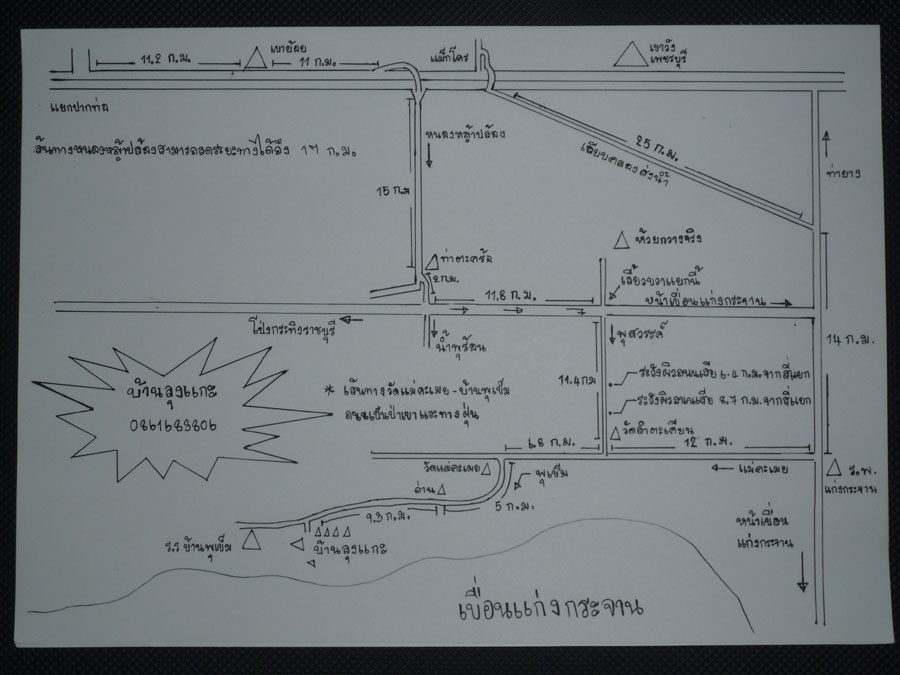 11.2 ก.ม.
เขาย้อย
11 ก.ม.
แม็กโคร
เขาวัง
เพชรบุรี
แยกปากท่อ
เส้นทางหนองหญ้าปล้องสามารถลดระยะทางได้ถึง 19 ก.ม.
หนองหญ้าปล้อง
25 ก.ม.
เลียบคลองส่งน้ำ
ท่ายาง
15 ก.ม
ห้วยกวางจริง
ท่าตะคร้อ
2 ก.ม.
11.8 ก.ม.
เลี้ยวขวาแยกนี้
หน้าเขื่อนแก่งกระจาน
โป่งกระทิงราชบุรี
น้ำพุร้อน
พุสวรรค์
14 ก.ม.
บ้านลุงแกะ
0861683806
11.4 กม
ระวังผิวถนนเสีย 6.4 ก.ม.จากสี่แยก
* เส้นทางวัดแม่คะเมย - บ้านพุเข็ม
ถนนเป็นป่าเขาและทางฝุ่น
ระวังผิวถนนเสีย 8.7 ก.ม.จากสี่แยก
วัดลำตะเคียน
6.8 ก.ม.
12 ก.ม.
วัดแม่คะเมย
พุเข็ม
แม่คะเมย
ร.พ.
แก่งกระจาน
ด่าน
5 ก.ม.
9.3 ก.ม.
หน้าเขื่อน
แก่งกระจาน
ร.ร บ้านพุเข็ม
บ้านลุงแกะ
เขื่อนแก่งกระจาน